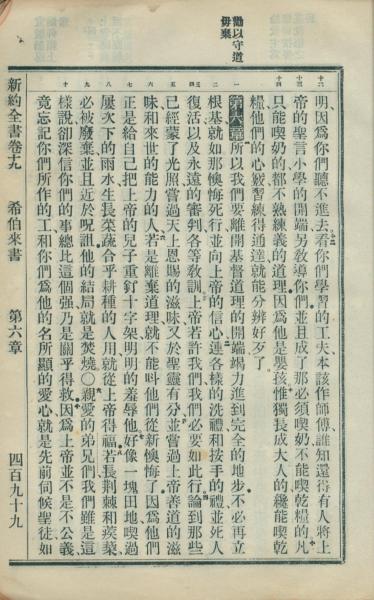 勸以守道
毋棄
明、因爲你們聽不進去、看你們學習的工夫、本該作師傅、誰知還得有人將上
帝的聖言小學的開端、另教導你們、並且成了那必須喫奶、不能喫乾糧的、凡
只能喫奶的、都不熟練義的道理、因爲他是嬰孩、惟獨長成大人的、纔能喫乾
糧、他們的心竅習練得通達、就能分辨好歹了、
第六章 所以我們要離開基督道理的開端、竭力進到完全的地步、不必再立
根基、就如那懊悔死行、並向上帝的信心、連各樣的洗禮、和按手的禮、並死人
復活、以及永遠的審判、各等敎訓、上帝若許我們、我們必要如此行、論到那些
已經蒙了光照、嘗過天上恩賜的滋味、又於聖靈有分、並嘗過上帝善道的滋
味、和來世的能力的人、若是離棄道理、就不能呌他們從新懊悔了、因爲他們
正是給自己把上帝的兒子重釘十字架、明明的羞辱他、好像一塊田地、喫過
屢次下的雨水、生長菜蔬、合乎耕種的人用、就從上帝得福、若長荆棘和蒺藜、
必被廢棄、並且近於呪詛、他的結局就是焚燒、○親愛的弟兄們、我們雖是這
樣說、卻深信你們的事、總比這個强、乃是關乎得救、因爲上帝並不是不公義、
竟忘記你們所作的工、和你們爲他的名所顯的愛心、就是先前伺候聖徒、如
新約全書卷十九 希伯來書 第六章 四百九十九